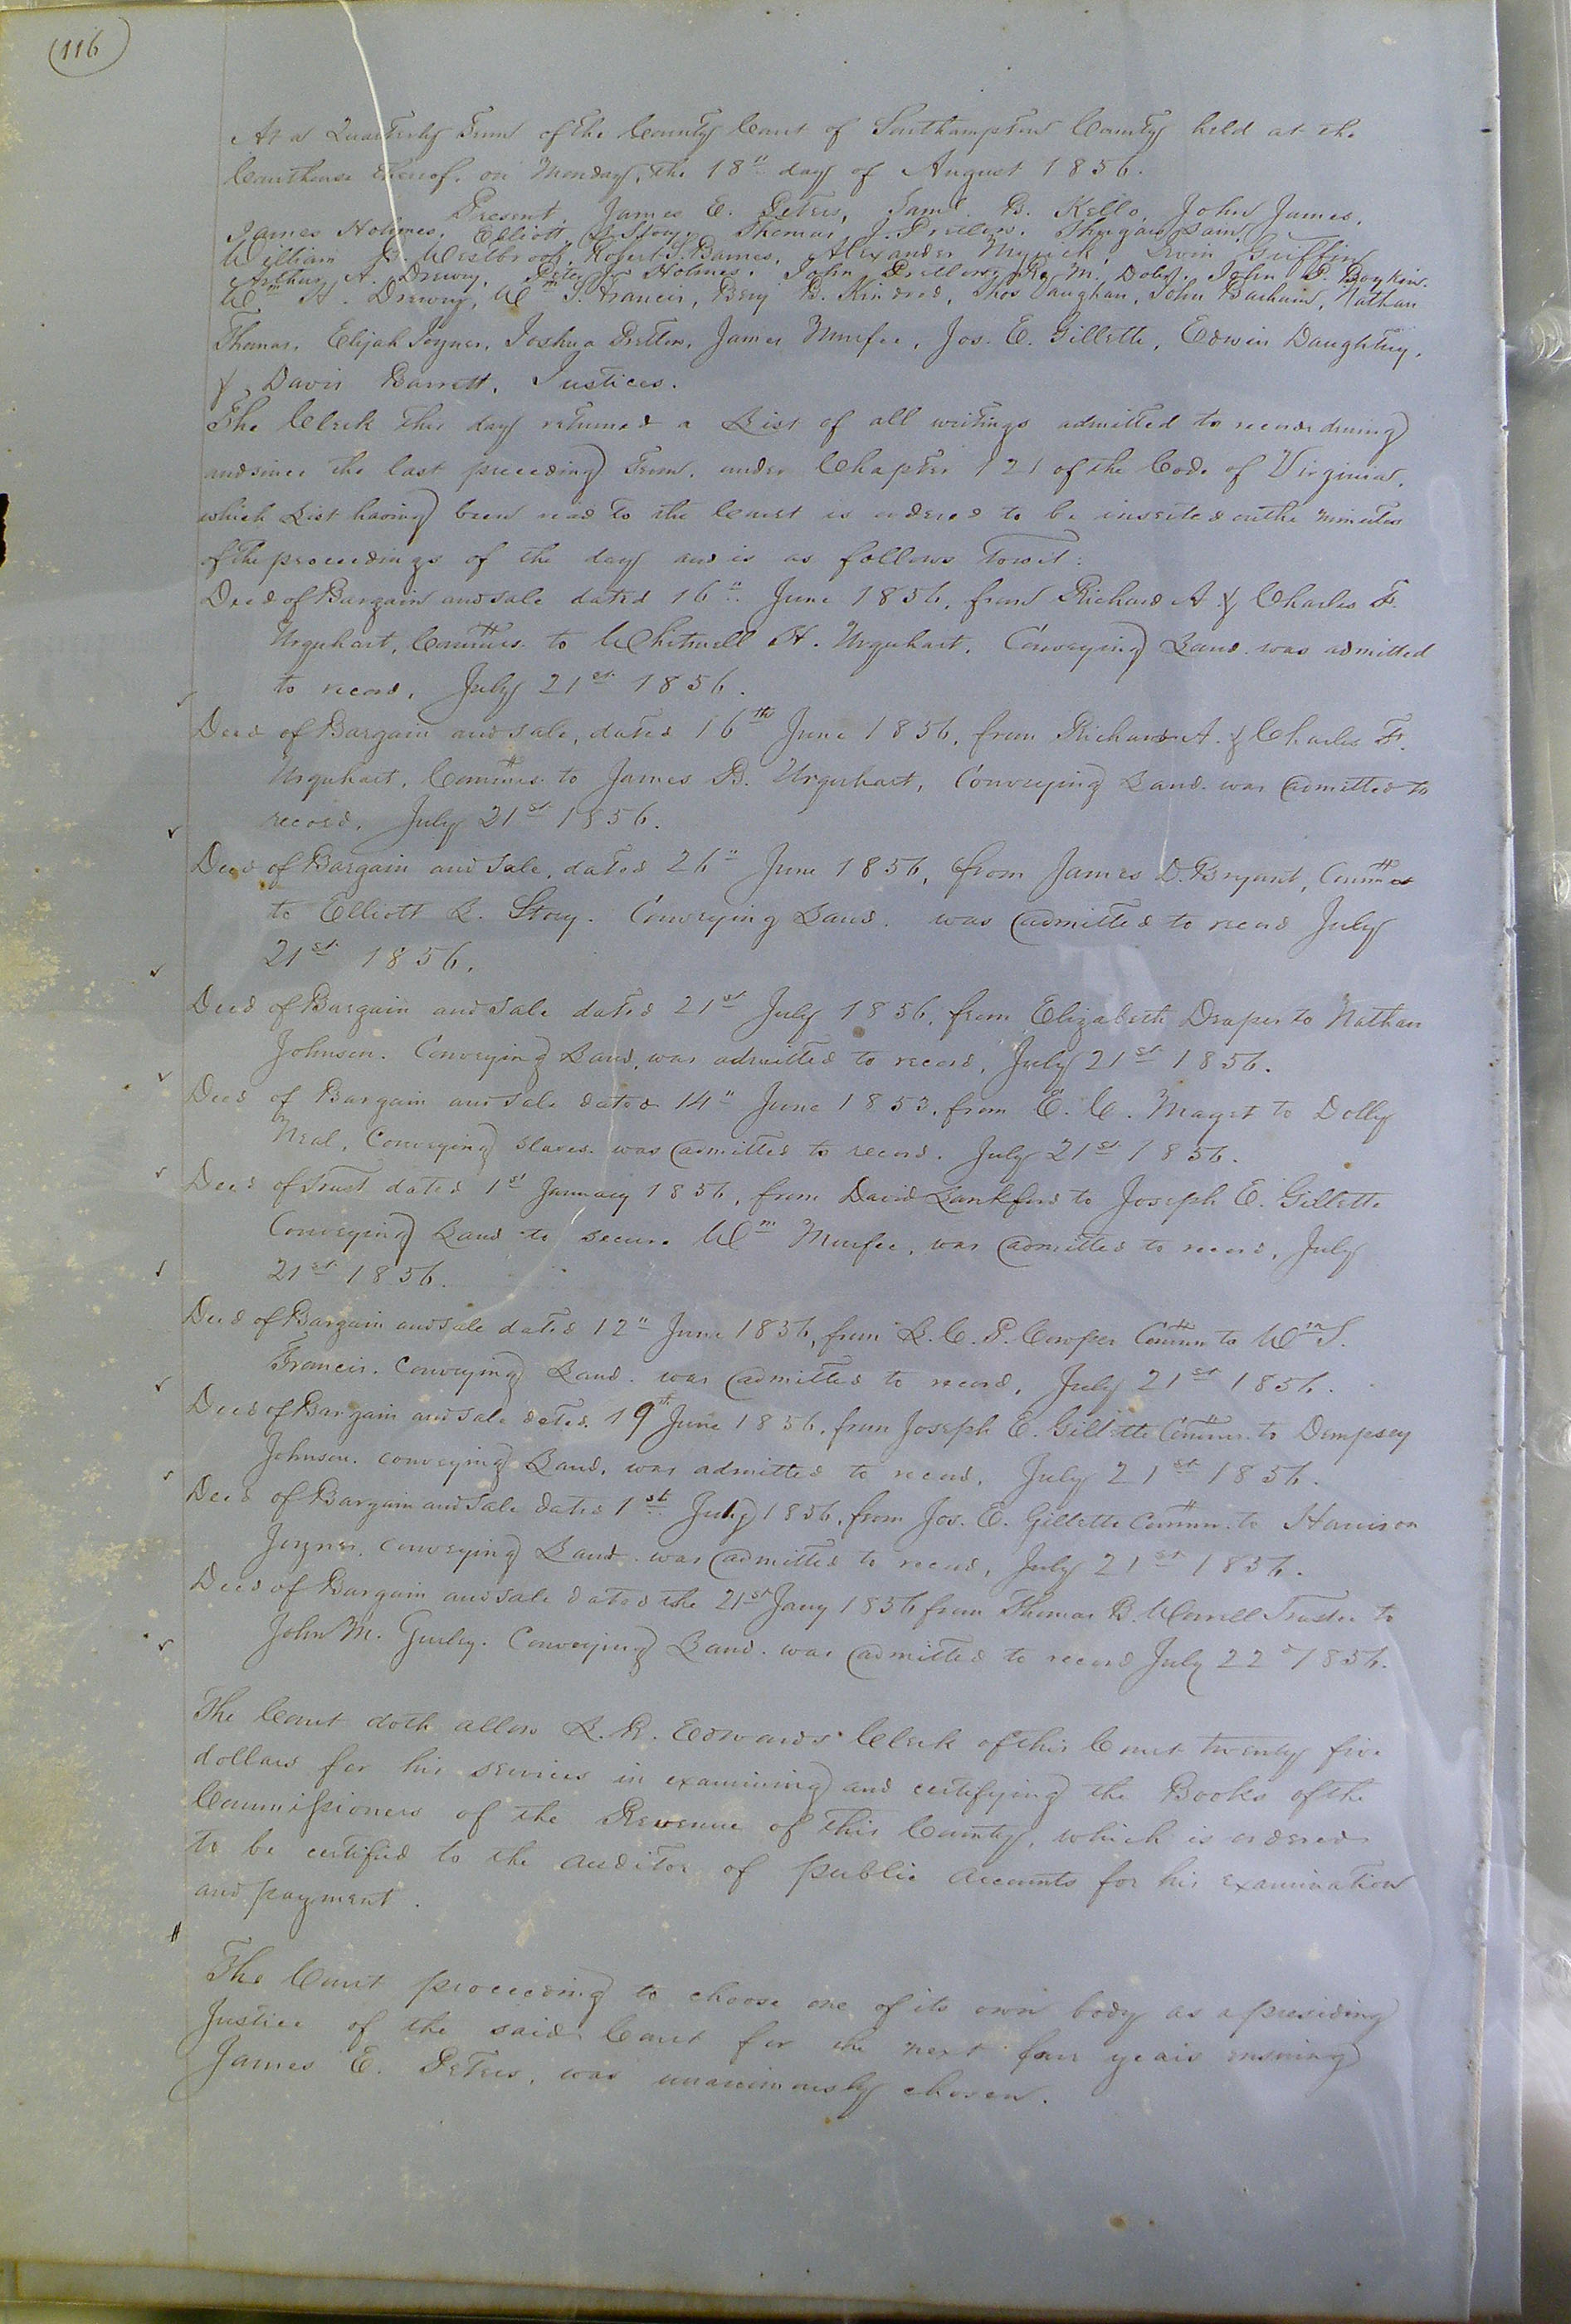 116
At a Quarterly Term of the County Court of Southampton County held at the
Courthouse thereof, on Monday, the 18" day of August 1856.
Present, James E. Peters, Saml. B. Kello, John James,
James Holmes, Elliott L. Story, Thomas J. Pretlow,
William H. Westbrook, Robert S. Barnes, Alexander Myrick, Irvin Griffin
Arthur A. Drewry, Peter J. Holmes, John Pretlow, Ro. M. Doles, John P. Boykin.
Wm. H. Drewry, Wm. S. Francis, Benj B. Kindred, Thos Vaughan, John Barham, Nathan
Thomas, Elijah Joyner, Joshua Pretlow, James Murfee, Jos. E. Gillette, Edwin Daughtry,
& Davis Barrett, Justices.
The Clerk this day returned a List of all writings admitted to record during
and since the last preceding Term, under Chapter 121 of the Code of Virginia,
which List having been read to the Court is ordered to be inserted on the minutes
of the proceedings of the day and is as follows Towit:
Deed of Bargain and sale dated 16" June 1856, from Richard A & Charles F.
Urquhart, Commrs. to Whitmell H. Urquhart, Conveying Land. was admitted
to record, July 21st 1856.
Deed of Bargain and sale, dated 16th June 1856, from Richard A. & Charles F.
Urquhart, Commrs. to James B. Urquhart, Conveying Land. was admitted to
record, July 21st 1856.
Deed of Bargain and sale, dated 26" June 1856, from James D. Bryant, Commr
to Elliott L. Story. Conveying Land. was admitted to record July
21st 1856.
Deed of Bargain and sale dated 21st July 1856, from Elizabeth Draper to Nathan
Johnson. Conveying Land, was admitted to record, July 21st 1856.
Deed of Bargain and sale dated 14" June 1853, from E. C. Maget to Dolly
Neal, Conveying slaves. was admitted to record. July 21st 1856.
Deed of Trust dated 1st January 1856, from David Lankford to Joseph E. Gillette
Conveying Land to secure Wm Murfee, was admitted to record, July
21st 1856.
Deed of Bargain and sale dated 12" June 1856, from L. C. P. Cowper Commr to Wm S.
Francis. Conveying Land. was admitted to record, July 21st 1856.
Deed of Bargain and sale dated 19th June 1856, from Joseph E. Gillette Commr. to Dempsey
Johnson. conveying Land, was admitted to record, July 21st 1856.
Deed of Bargain and sale dated 1st July 1856, from Jos. E. Gillette Commr. to Harrison
Joyner, conveying Land. was admitted to record, July 21st 1856.
Deed of Bargain and sale dated the 21st Jany 1856 from Thomas B. Worrell Trustee to
John M. Gurley. Conveying Land. was admitted to record July 22d 1856.
The Court doth allow L. R. Edwards Clerk of this Court twenty five
dollars for his services in examining and certifying the Books of the
Commissioners of the Revenue of this County, which is ordered
to be certified to the auditor of public accounts for his examination
and payment.
The Court proceeding to choose one of its own body as a presiding
Justice of the said Court for the next four years ensuing
James E. Peters, was unanimously chosen.